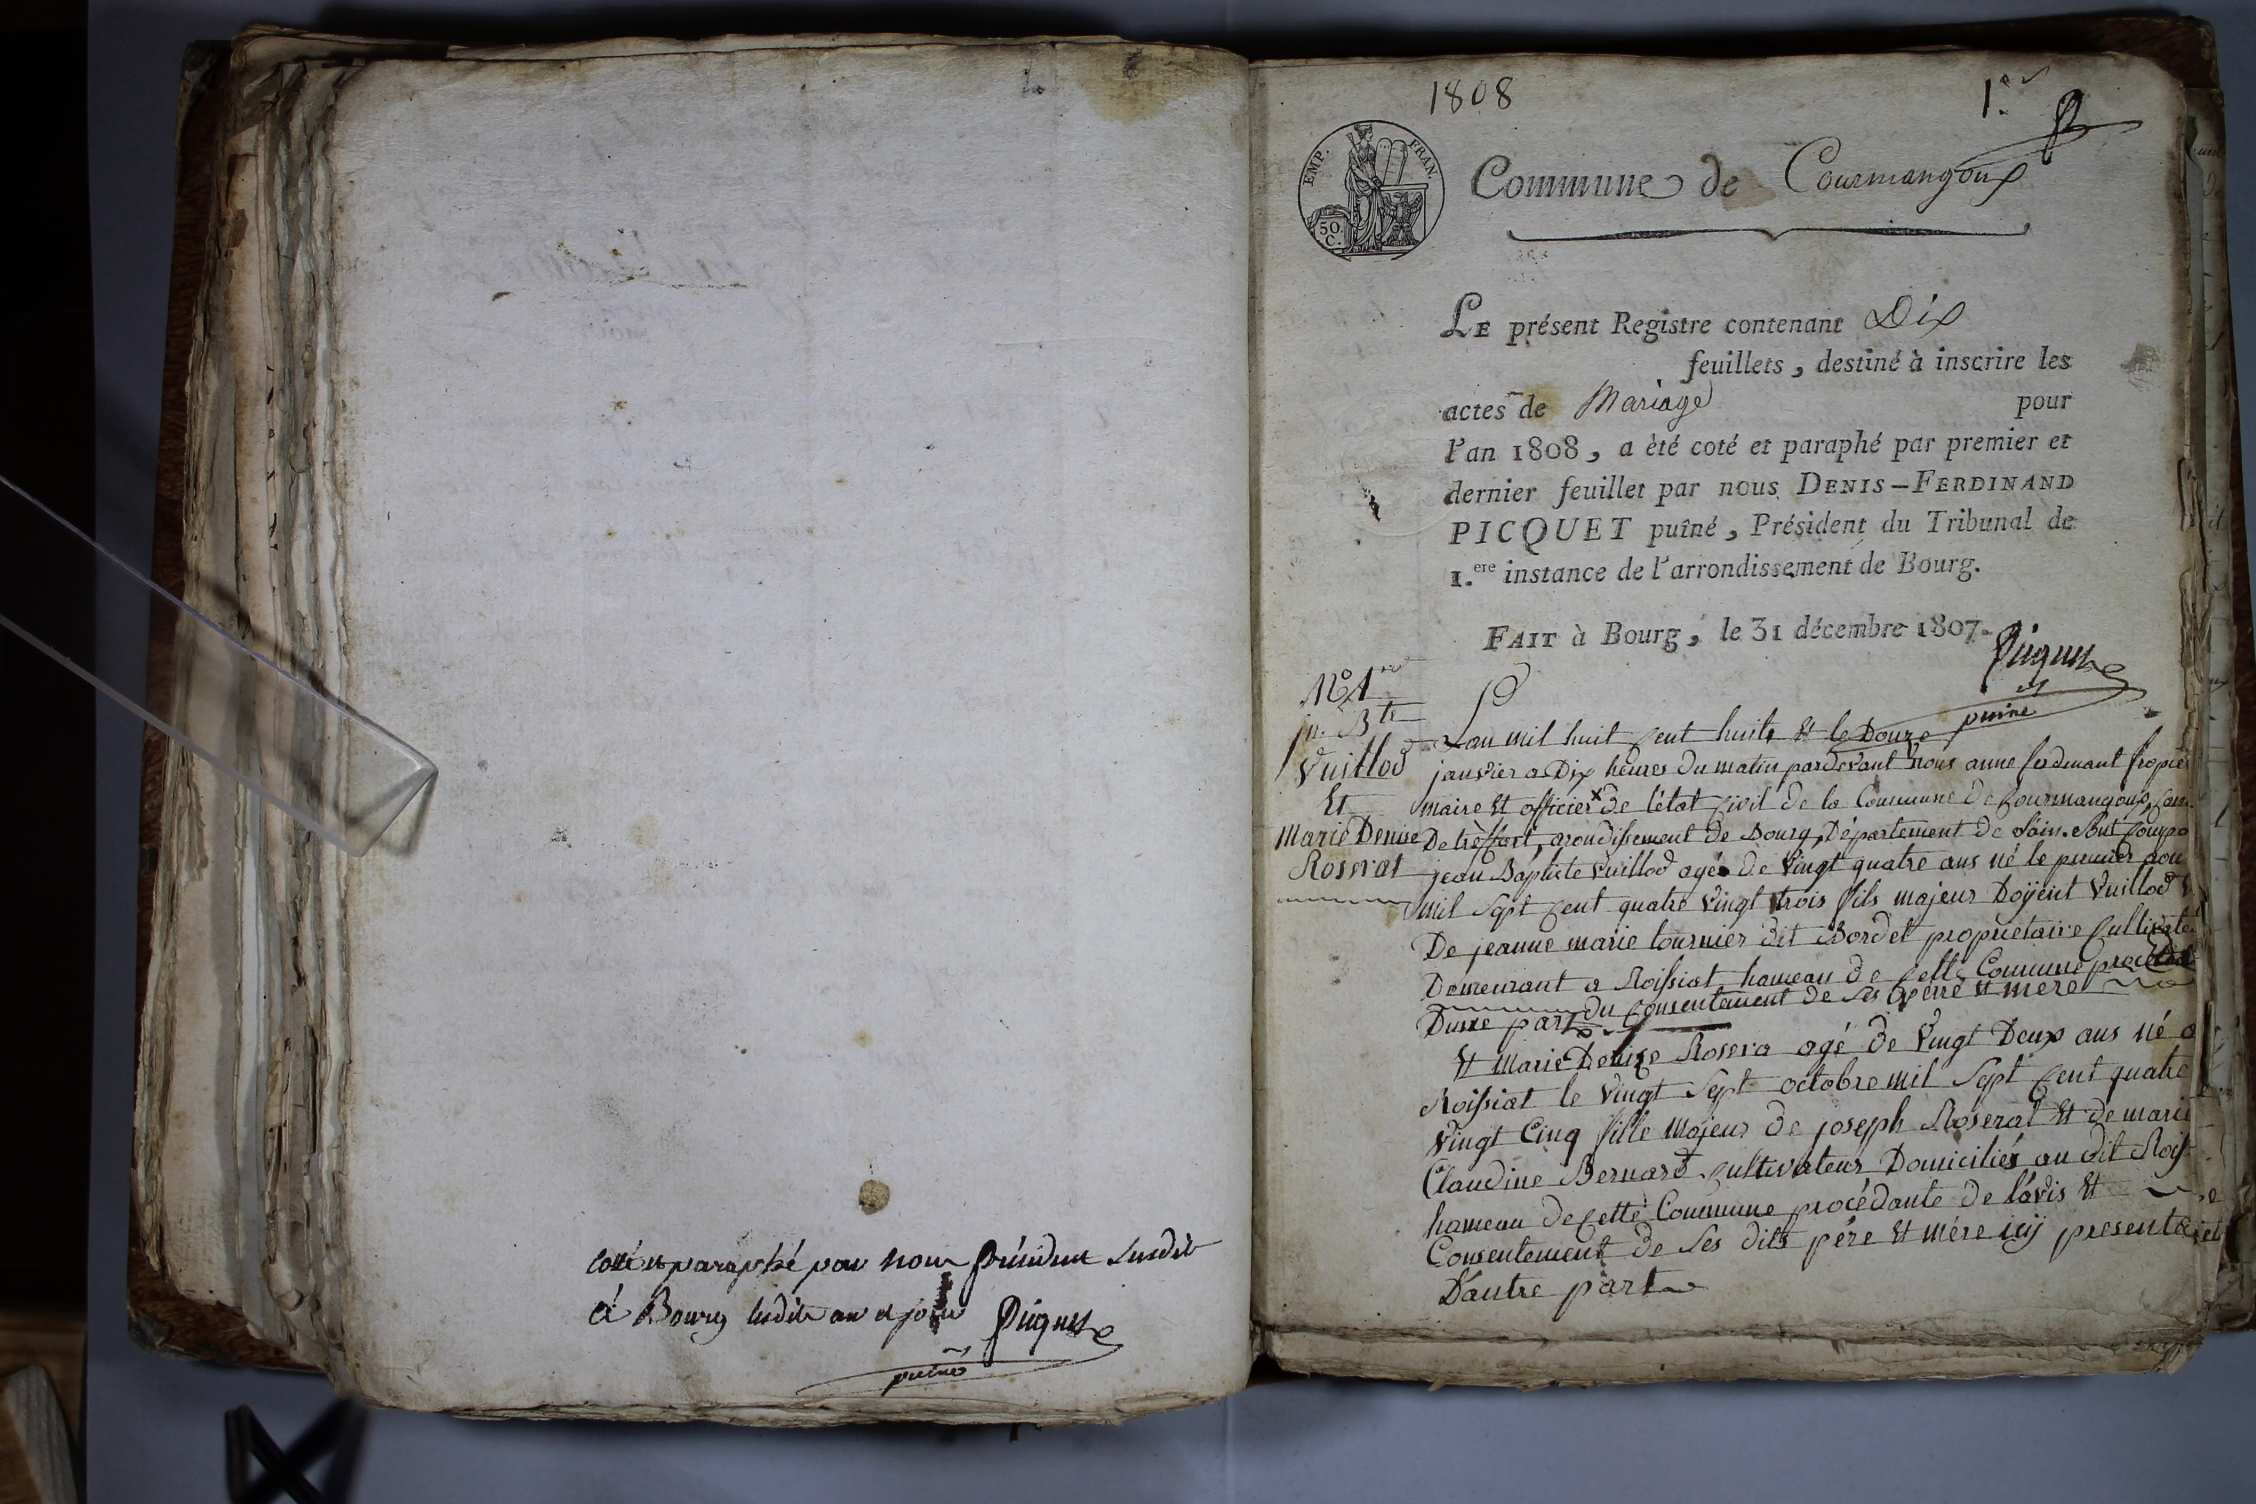 cotté et paraphé par nous Président susdit
à Bourg lesdits an et jour Picquet
puiné
1808
1.er
EMP. FRAN.
50 C.
Commune de Courmangoux
LE présent Registre contenant Dix
feuillets, destiné à inscrire les
actes de Mariage pour
l'an 1808, a èté coté et paraphé par premier et
dernier feuillet par nous DENIS-FERDINAND
PICQUET puîné, Président du Tribunal de
1.ere instance de l'arrondissement de Bourg.
FAIT à Bourg, le 31 décembre 1807.
Picquet
puiné
N.o 1er
jn. Bte
Vuillod
Et
Marie Denise
Roserat
Lan mil huit Cent huit, Et le Douze
janvier a Dix heures du matin pardevant nous anne ferdinant
maire Et officier de l'état Civil de la Commune de Courmangoux Can
De tréffort, arondissement de Bourg, Département de Lain. Sont Compa
jean Baptiste Vuillod agé de Vingt quatre ans né le premier aou
mil Sept Cent quatre Vingt trois fils majeur Doyent Vuillod
De jeanne marie tournier dit Bordet propriétaire Cultivate
Demeurant a Roissiat hameau de Cette Commune
du Consentement de Ses père Et mère
Dune part
Et Marie Denise Rosera agé de Vingt Deux ans né a
Roissiat le Vingt Sept octobre mil Sept Cent quatre
Vingt Cinq fille Majeur de joseph Roserat Et de marie
Claudine Bernard Cultivateur Domiciliés au dit Rois
hameau de Cette Commune procédante de l'avis Et
Consentement de Ses dits père Et mére icy present
D'autre part